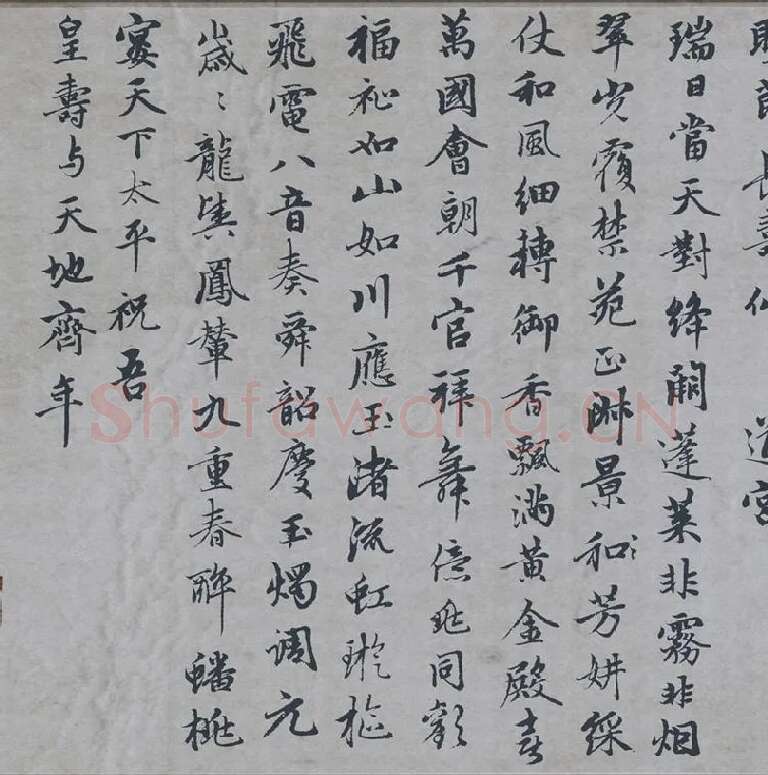 節長壽仙 道宮
瑞日當天對絳闕蓬萊非霧非烟
翠光覆禁苑正淑景和芳妍綵
仗和風細轉御香飄滿黃金殿喜
萬國會朝千官拜舞億兆同歡
福祉如山如川應玉渚流虹璇樞
飛電八音奏舜韶慶玉燭調元
歲〻龍輿鳳輦九重春醉蟠桃
宴天下太平祝吾
皇壽与天地齊年
Shufawang.CN